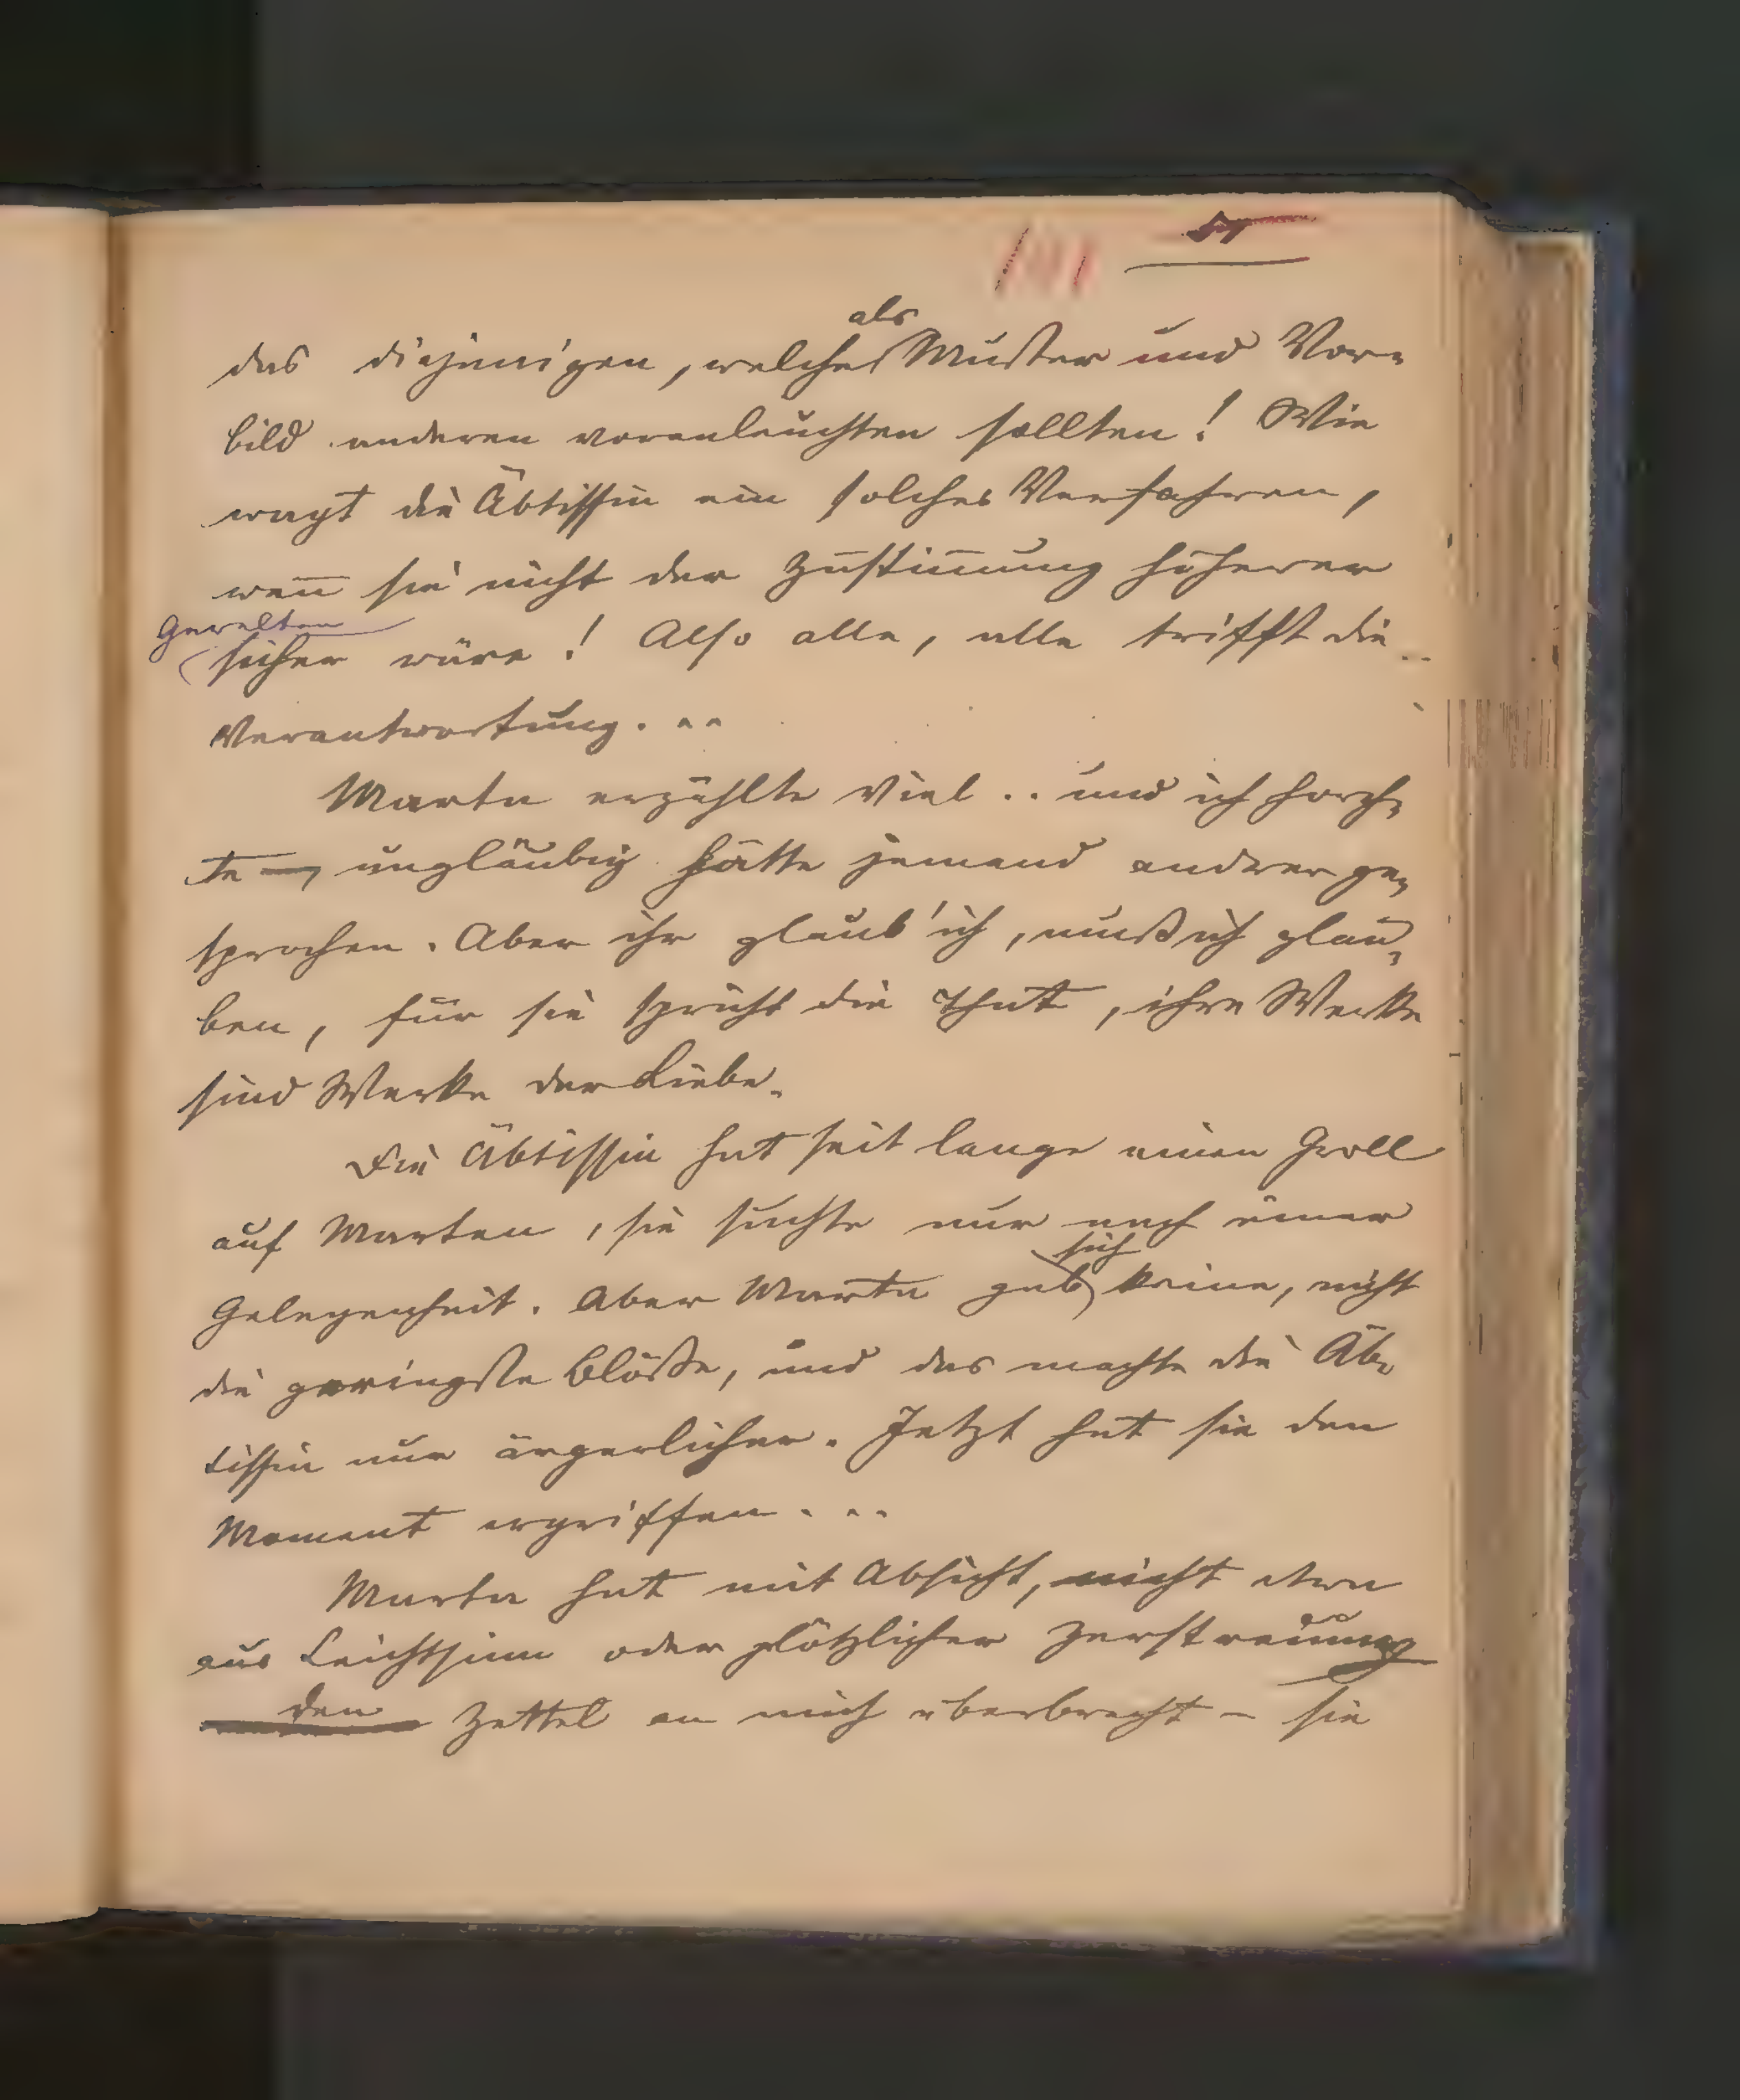 als
das diejenigen, welche Muster und Vor-
bild anderen voranleuchten sollten! Wie
wagt die Äbtissin ein solches Verfahren,
weñ sie nicht der Zustim̄ung höherer
Gewalten
sicher wäre! Also alle, alle trifft die
Verantwortung. ..
Marta erzählte viel .. und ich horch-
te — ungläubig hätte jemand anderer ge-
sprochen. Aber ihr glaub' ich, muß ich glau-
ben, für sie spricht die That, ihre Werke
sind Werke der Liebe.
Die Äbtissin hat seit lange einen Groll
auf Marten, sie suchte nur nach einer
sich
Gelegenheit. Aber Marta gab keine, nicht
die geringste Blöße, und das machte die Äb-
tissin nur ärgerlicher. Jetzt hat sie den
Moment ergriffen. ..
Marta hat mit Absicht, nicht etwa
aus Leichtsinn oder plötzlicher Zerstreuung
den Zettel an mich überbracht – sie